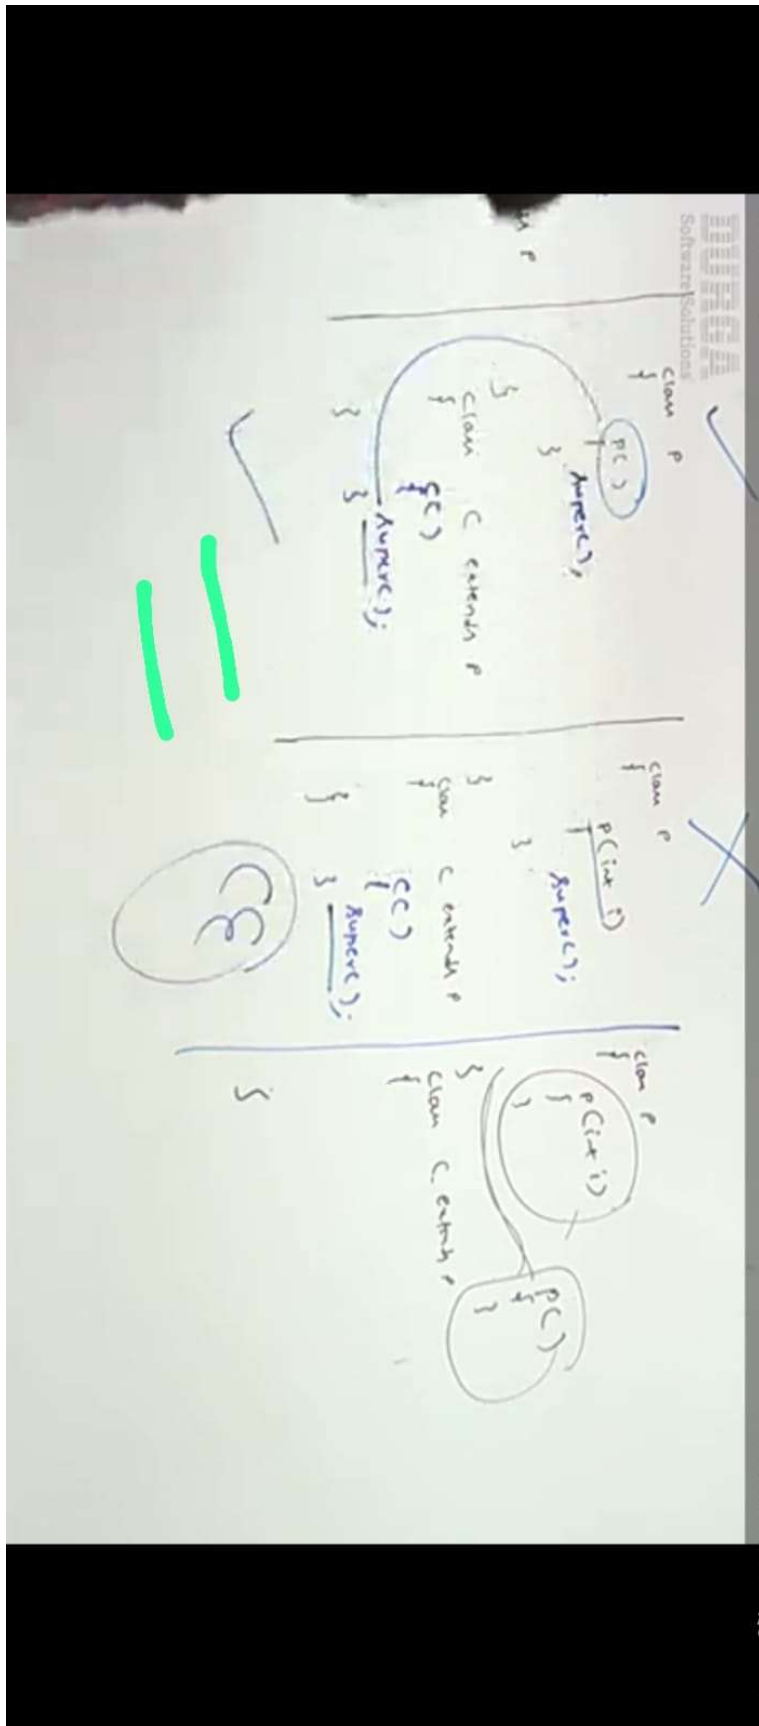 DURGA
Software Solutions
P
class P
{
P()
{
super();
}
}
class C extends P
{
C()
{
super();
}
}
class P
{
P(int i)
{
super();
}
}
class C extends P
{
C()
{
super();
}
}
CE
class P
{
P(int i)
{
}
P()
{
}
}
class C extends P
{
}